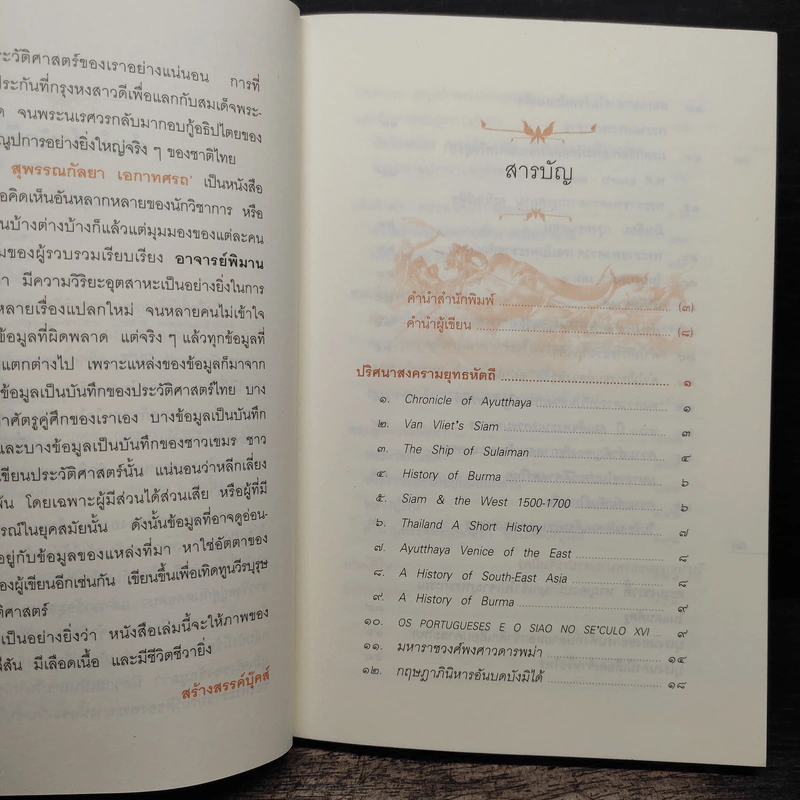 ระวัติศาสตร์ของเราอย่างแน่นอน การที่
ประกันที่กรุงหงสาวดีเพื่อแลกกับสมเด็จพระ-
จนพระนเรศวรกลับมากอบกู้อธิปไตยของ
ณูปการอย่างยิ่งใหญ่จริง ๆ ของชาติไทย
สุพรรณกัลยา เอกาทศรถ' เป็นหนังสือ
อคิดเห็นอันหลากหลายของนักวิชาการ หรือ
นบ้างต่างบ้างก็แล้วแต่มุมมองของแต่ละคน
มของผู้รวบรวมเรียบเรียง อาจารย์พิมาน
มีความวิริยะอุตสาหะเป็นอย่างยิ่งในการ
หลายเรื่องแปลกใหม่ จนหลายคนไม่เข้าใจ
ข้อมูลที่ผิดพลาด แต่จริง ๆ แล้วทุกข้อมูลที่
แตกต่างไป เพราะแหล่งของข้อมูลก็มาจาก
ข้อมูลเป็นบันทึกของประวัติศาสตร์ไทย บาง
าศัตรูคู่ศึกของเราเอง บางข้อมูลเป็นบันทึก
และบางข้อมูลเป็นบันทึกของชาวเขมร ชาว
เขียนประวัติศาสตร์นั้น แน่นอนว่าหลีกเลี่ยง
โดยเฉพาะผู้มีส่วนได้ส่วนเสีย หรือผู้ที่มี
รณ์ในยุคสมัยนั้น ดังนั้นข้อมูลที่อาจดูอ่อน-
อยู่กับข้อมูลของแหล่งที่มา หาใช่อัตตาของ
องผู้เขียนอีกเช่นกัน เขียนขึ้นเพื่อเทิดทูนวีรบุรุษ
ติศาสตร์
เป็นอย่างยิ่งว่า หนังสือเล่มนี้จะให้ภาพของ
สีสัน มีเลือดเนื้อ และมีชีวิตชีวายิ่ง
สร้างสรรค์บุ๊คส์
สารบัญ
คำนำสำนักพิมพ์ (๓)
คำนำผู้เขียน (๘)
ปริศนาสงครามยุทธหัตถี ๑
๑. Chronicle of Ayutthaya ๑
๒. Van Vliet's Siam ๓
๓. The Ship of Sulaiman ๕
๔. History of Burma ๖
๕. Siam & the West 1500-1700 ๖
๖. Thailand A Short History ๗
๗. Ayutthaya Venice of the East ๘
๘. A History of South-East Asia ๘
๙. A History of Burma ๙
๑๐. OS PORTUGUESES E O SIAO NO SE'CULO XVI ๙
๑๑. มหาราชวงศ์พงศาวดารพม่า ๑๕
๑๒. กฤษฎาภินิหารอันบดบังมิได้ ๑๘